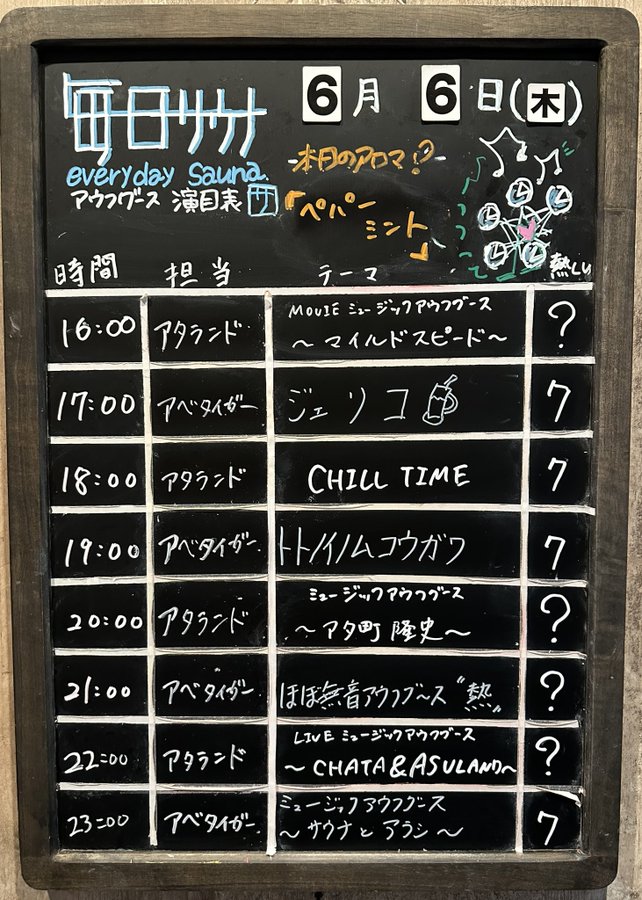 毎日サウナ
6月6日(木)
everyday sauna.
アウフグース 演目表 サ
本日のアロマ!?
「ペパーミント」
時間 担当 テーマ 熱しい
16:00 アタランド MOVIE ミュージックアウフグース
～マイルドスピード～ ?
17:00 アベタイガー ジェリコ 7
18:00 アタランド CHILL TIME 7
19:00 アベタイガー トトノイノムコウガワ 7
20:00 アタランド ミュージックアウフグース
～アタ町 隆史～ ?
21:00 アベタイガー ほぼ無音アウフグース "熱" ?
22:00 アタランド LIVE ミュージックアウフグース
～CHATA&ASULAND～ ?
23:00 アベタイガー ミュージックアウフグース
～サウナと アラシ～ 7